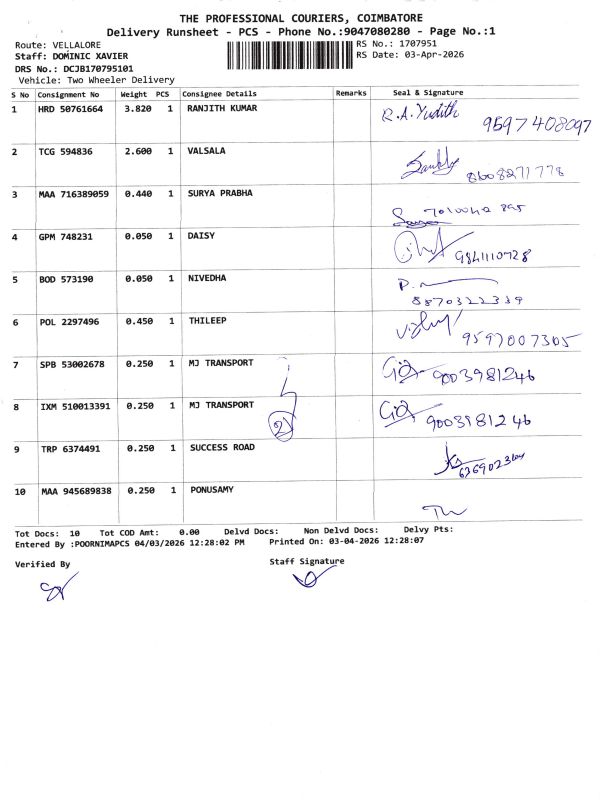 THE PROFESSIONAL COURIERS, COIMBATORE
Delivery Runsheet - PCS - Phone No.:9047080280 - Page No.:1
Route: VELLALORE RS No.: 1707951
Staff: DOMINIC XAVIER RS Date: 03-Apr-2026
DRS No.: DCJB170795101
Vehicle: Two Wheeler Delivery
S No Consignment No Weight PCS Consignee Details Remarks Seal & Signature
1 HRD 50761664 3.820 1 RANJITH KUMAR R.A. Yudith 9597408097
2 TCG 594836 2.600 1 VALSALA 8608271778
3 MAA 716389059 0.440 1 SURYA PRABHA
4 GPM 748231 0.050 1 DAISY
5 BOD 573190 0.050 1 NIVEDHA 8870322339
6 POL 2297496 0.450 1 THILEEP 9597007305
7 SPB 53002678 0.250 1 MJ TRANSPORT 9003981246
8 IXM 510013391 0.250 1 MJ TRANSPORT 2 9003981246
9 TRP 6374491 0.250 1 SUCCESS ROAD
10 MAA 945689838 0.250 1 PONUSAMY
Tot Docs: 10 Tot COD Amt: 0.00 Delvd Docs: Non Delvd Docs: Delvy Pts:
Entered By :POORNIMAPCS 04/03/2026 12:28:02 PM Printed On: 03-04-2026 12:28:07
Verified By Staff Signature